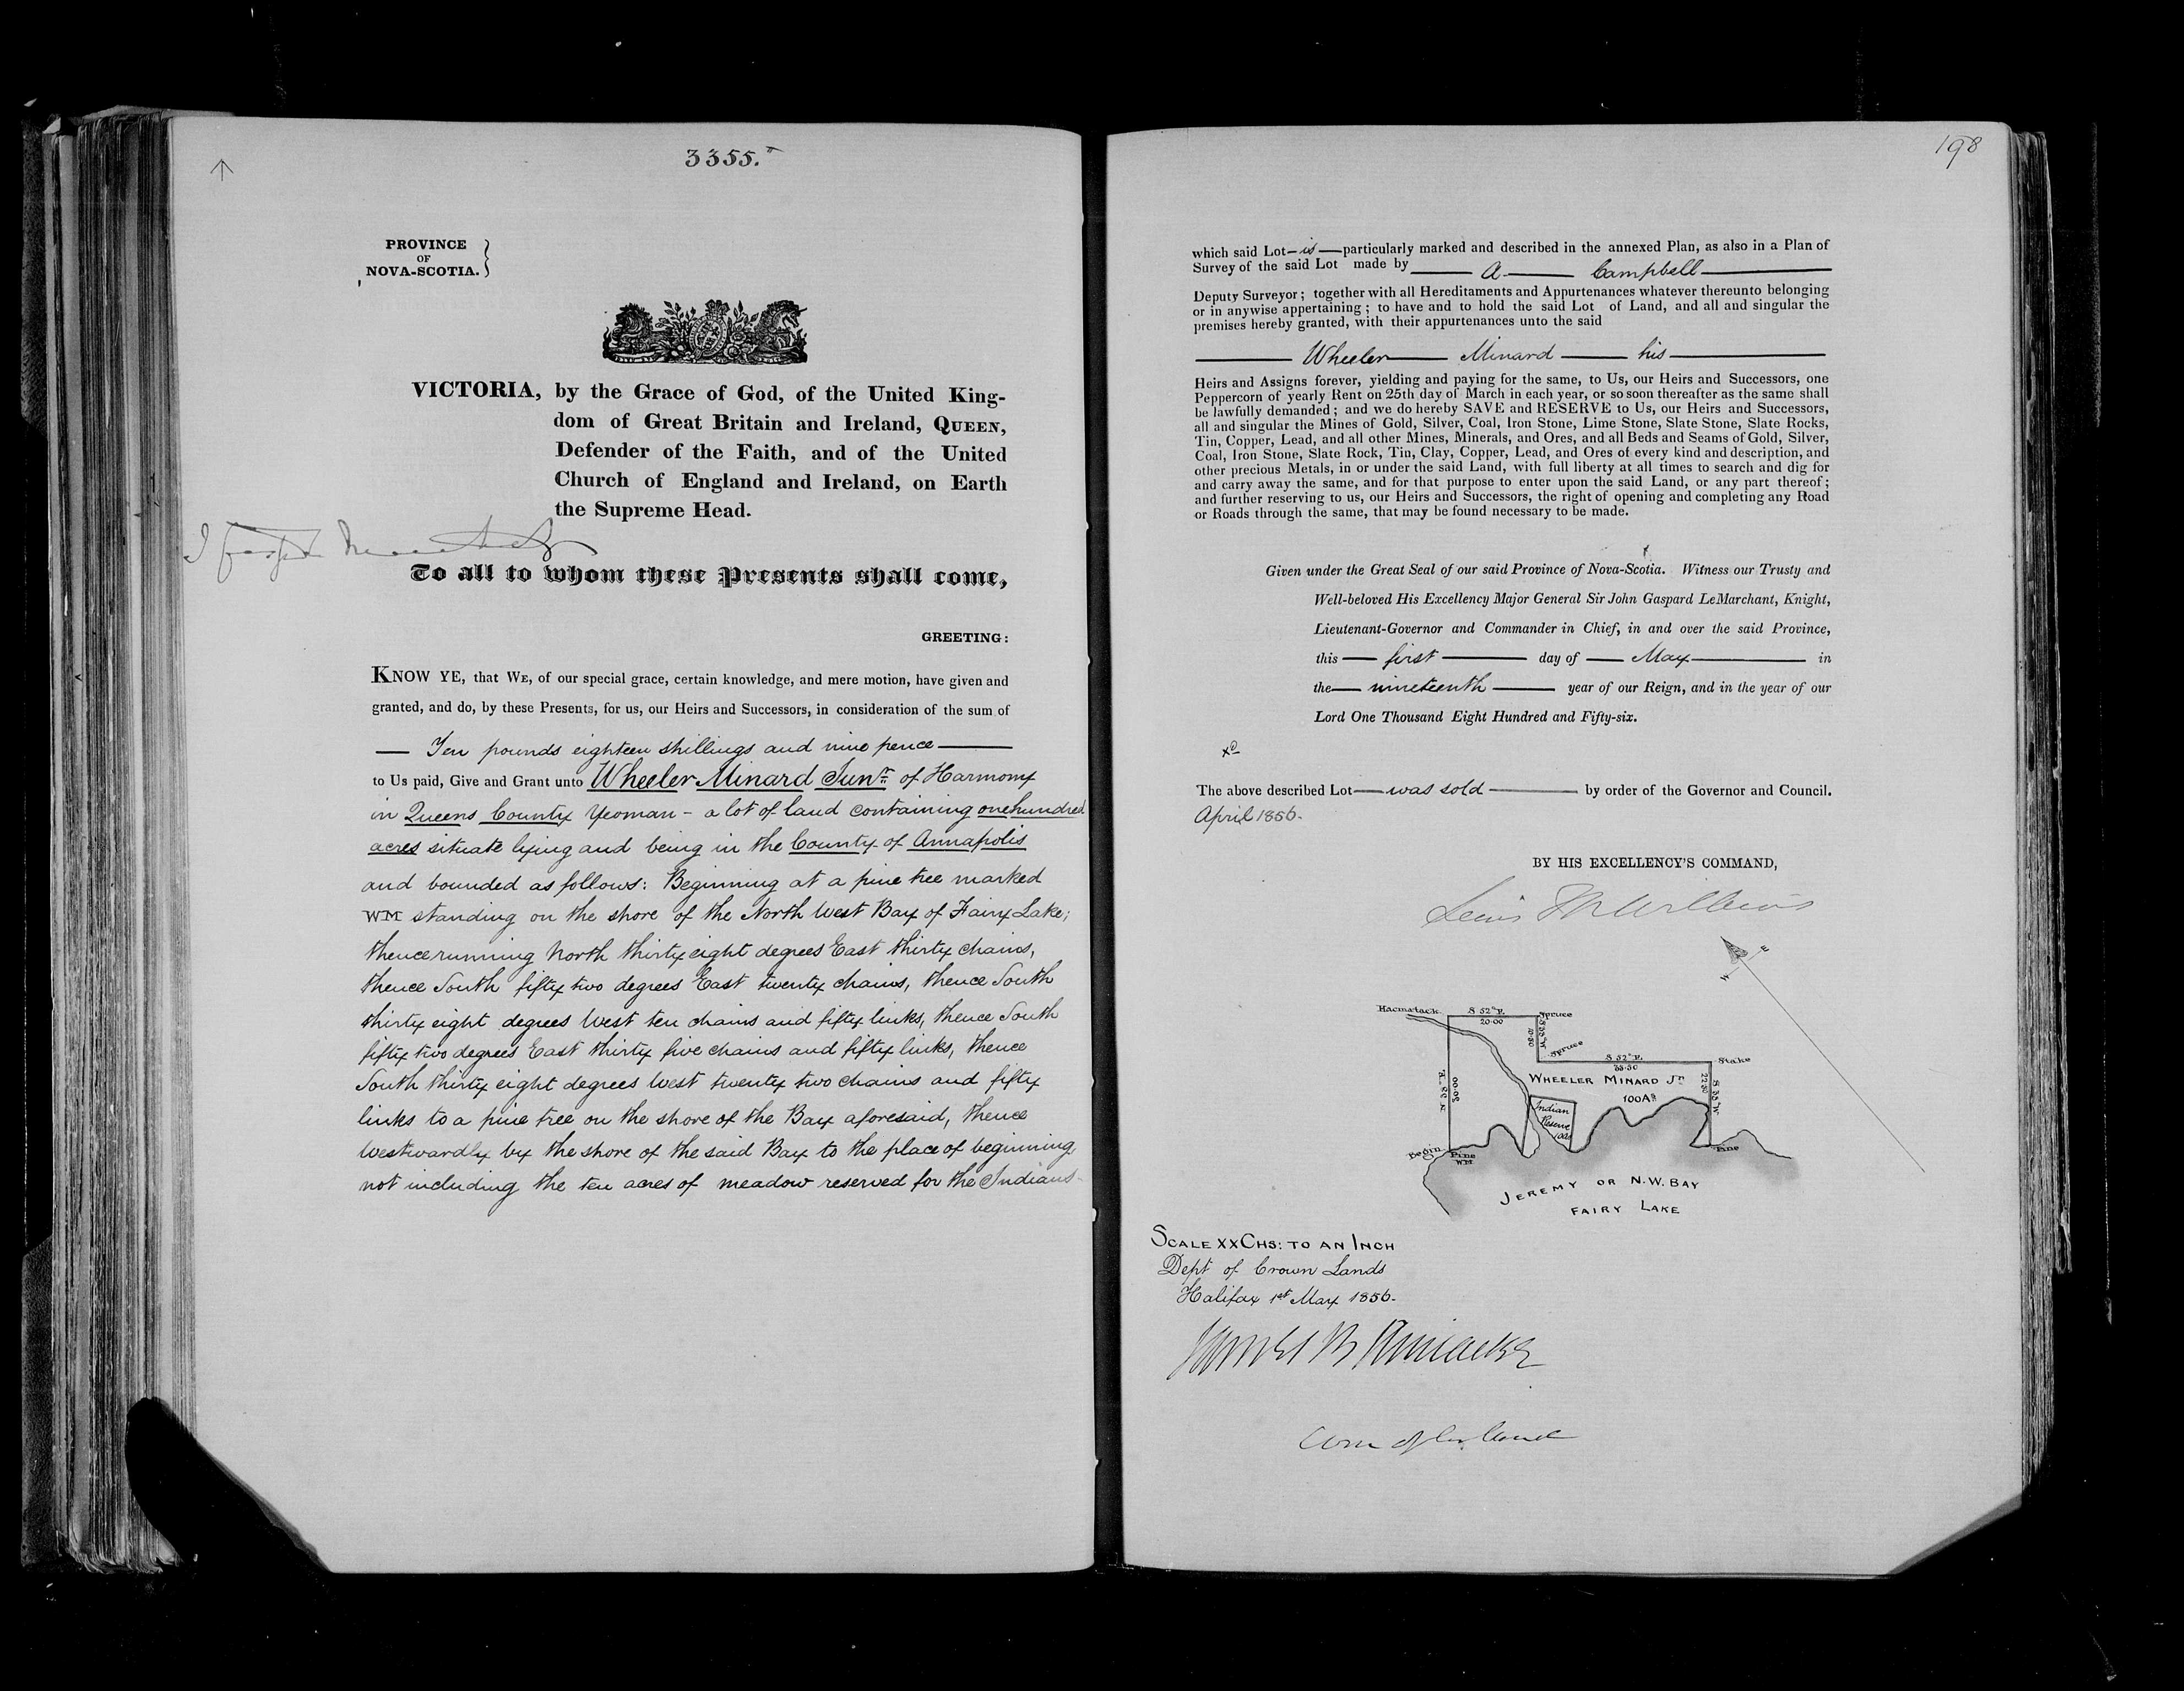 3355.
PROVINCE
OF
NOVA-SCOTIA.
VICTORIA, by the Grace of God, of the United King-
dom of Great Britain and Ireland, QUEEN,
Defender of the Faith, and of the United
Church of England and Ireland, on Earth
the Supreme Head.
To all to whom these Presents shall come,
GREETING:
KNOW YE, that WE, of our special grace, certain knowledge, and mere motion, have given and
granted, and do, by these Presents, for us, our Heirs and Successors, in consideration of the sum of
— Ten pounds eighteen shillings and nine pence —
to Us paid, Give and Grant unto Wheeler Minard Junr. of Harmony
in Queens County Yeoman - a lot of land containing one hundred
acres situate lying and being in the County of Annapolis
and bounded as follows: Beginning at a pine tree marked
WM standing on the shore of the North West Bay of Fairy Lake;
thence running North thirty eight degrees East thirty chains,
thence South fifty two degrees East twenty chains, thence South
thirty eight degrees West ten chains and fifty links, thence South
fifty two degrees East thirty five chains and fifty links, thence
South thirty eight degrees West twenty two chains and fifty
links to a pine tree on the shore of the Bay aforesaid, thence
Westwardly by the shore of the said Bay to the place of beginning,
not including the ten acres of meadow reserved for the Indians-
198
which said Lot — is — particularly marked and described in the annexed Plan, as also in a Plan of
Survey of the said Lot made by — A — Campbell —
Deputy Surveyor; together with all Hereditaments and Appurtenances whatever thereunto belonging
or in anywise appertaining; to have and to hold the said Lot of Land, and all and singular the
premises hereby granted, with their appurtenances unto the said
— Wheeler — Minard — his —
Heirs and Assigns forever, yielding and paying for the same, to Us, our Heirs and Successors, one
Peppercorn of yearly Rent on 25th day of March in each year, or so soon thereafter as the same shall
be lawfully demanded; and we do hereby SAVE and RESERVE to Us, our Heirs and Successors,
all and singular the Mines of Gold, Silver, Coal, Iron Stone, Lime Stone, Slate Stone, Slate Rocks,
Tin, Copper, Lead, and all other Mines, Minerals, and Ores, and all Beds and Seams of Gold, Silver,
Coal, Iron Stone, Slate Rock, Tin, Clay, Copper, Lead, and Ores of every kind and description, and
other precious Metals, in or under the said Land, with full liberty at all times to search and dig for
and carry away the same, and for that purpose to enter upon the said Land, or any part thereof;
and further reserving to us, our Heirs and Successors, the right of opening and completing any Road
or Roads through the same, that may be found necessary to be made.
Given under the Great Seal of our said Province of Nova-Scotia. Witness our Trusty and
Well-beloved His Excellency Major General Sir John Gaspard LeMarchant, Knight,
Lieutenant-Governor and Commander in Chief, in and over the said Province,
this — first — day of — May — in
the — nineteenth — year of our Reign, and in the year of our
Lord One Thousand Eight Hundred and Fifty-six.
xd
The above described Lot — was sold — by order of the Governor and Council.
April 1856.
BY HIS EXCELLENCY'S COMMAND,
Lewis M Wilkins
E
W
Hacmatack
S 52° E.
20.00
Spruce
S 38° W
10.50
Spruce
S 52° E.
35.50
Stake
WHEELER MINARD Jr.
100As
22.50
S 38° W
N 38° E.
30.00
Indian
Reserve
10As
Begin
Pine
WM
Pine
JEREMY OR N.W. BAY
FAIRY LAKE
SCALE XX CHS: TO AN INCH
Dept of Crown Lands
Halifax 1st May 1856.
James B Uniacke